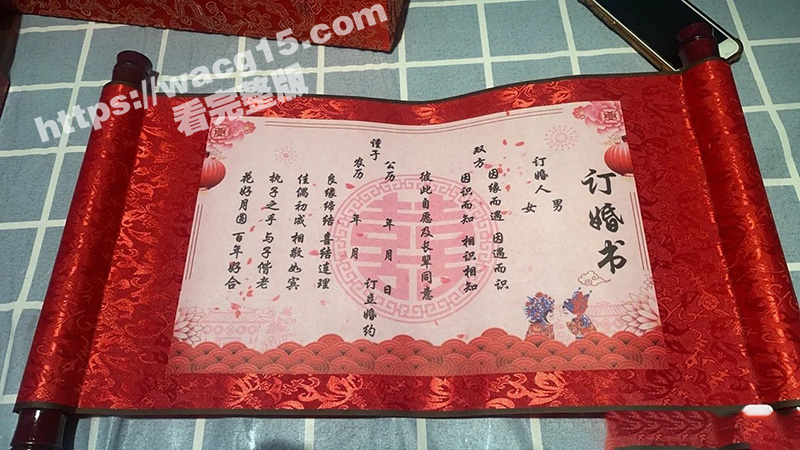 https://wacg15.com
看完整版
订婚书
订婚人 男
女
双方 因缘而遇 因遇而识
因识而知 相识相知
彼此自愿及长辈同意
谨于 公历 年 月 日
农历 年 月 订立婚约
良缘缔结 喜结连理
佳偶初成 相敬如宾
执子之手 与子偕老
花好月圆 百年好合
囍